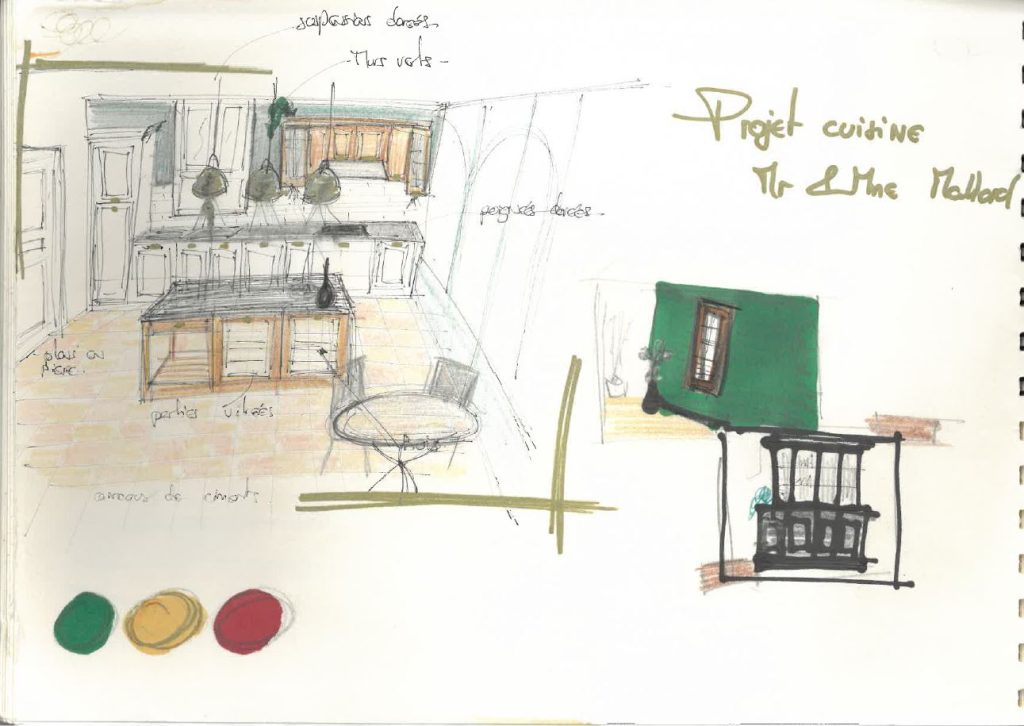 suspensions dorées
Murs verts
Projet cuisine
Mr & Mme Mallard
poignées dorées
plans en
pierre
parties vitrées
bois
carreaux de ciments